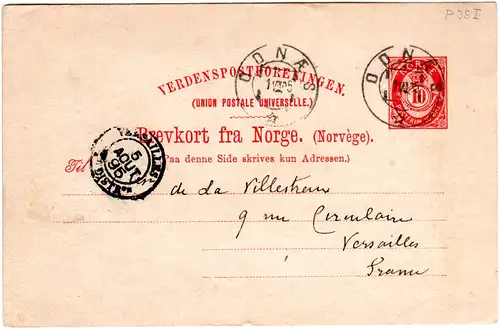 P 35 I
ODNÆS
ODNÆS
VERDENSPOSTFORENINGEN.
(UNION POSTALE UNIVERSELLE.)
10
Brevkort fra Norge. (Norvège.)
(Paa denne Side skrives kun Adressen.)
Til
VERSAILLES
5
AOUT
95
de la Villestreux
9 rue Circulaire
Versailles
France